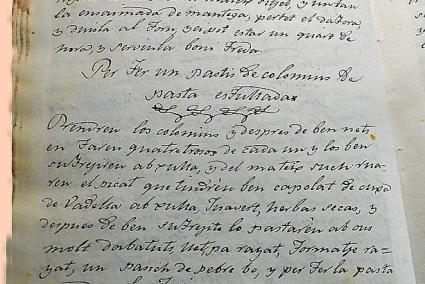 la ensaimada de mantega, pertot el dabora,
y durola al Forn, y expot estar un quart de
ura, y servirla boni Freda.
Per Fer un pastis de colomins de
pasta esfullada
Prendreu los colomins y despres de ben nets
en Fareu quatre trosos de cada un y los ben
sufrejireu ab xulla, y del mateix such ma-
reu el picat que tindreu ben capolat de cuxa
de Vadella ab xulla, Juavert, herbas secas, y
despues de ben sufrejito lo pastareu ab ous
molt dorbatuts, llet, pa rayat, Formatje ra-
yat, un panch de pebre bo, y per Fer la pasta